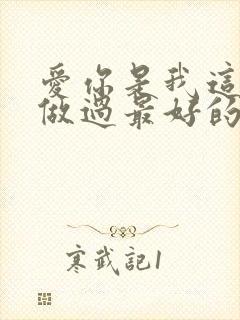 愛你是我這
做過最好的
寒武記1